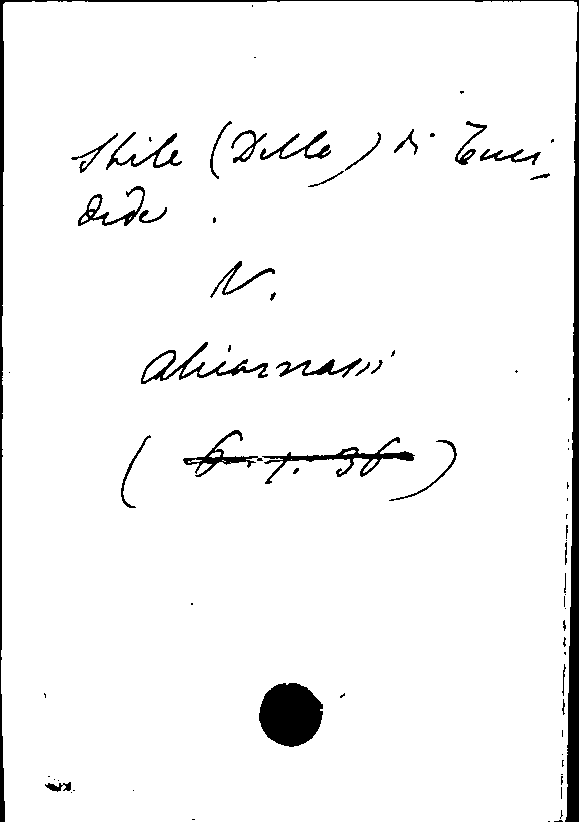 Stile (Dello) di Tuci-
dide.
V.
Alicarnassi
(6. 1. 36)